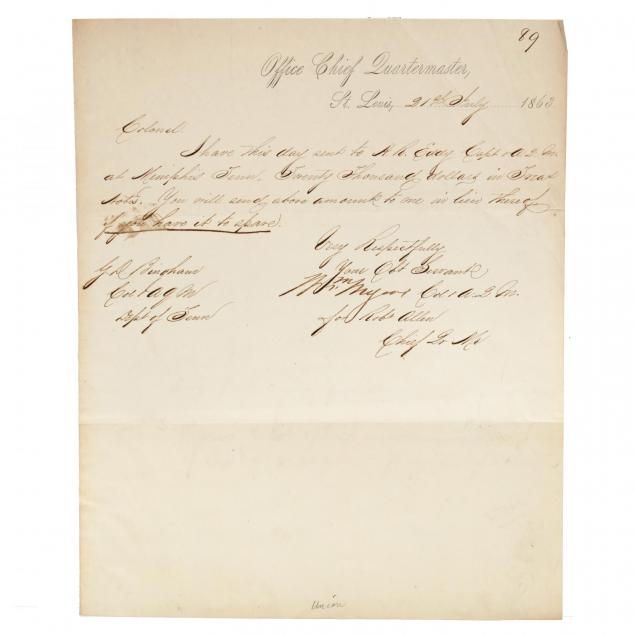 89
Office Chief Quartermaster,
St. Louis, 21st July 1863.
Colonel
I have this day sent to A. R. Eddy Capt & A. Q. M.
at Memphis Tenn. Twenty Thousand dollars in Treas
Notes. You will send above amount to me in lieu thereof
if you have it to spare.
Very Respectfully
Your Obt Servant
Wm Myers Col & A. Q. M.
for Robt Allen
Chief Qr Mr
J. D. Bingham
Col & A Q M
Dept of Tenn
Union